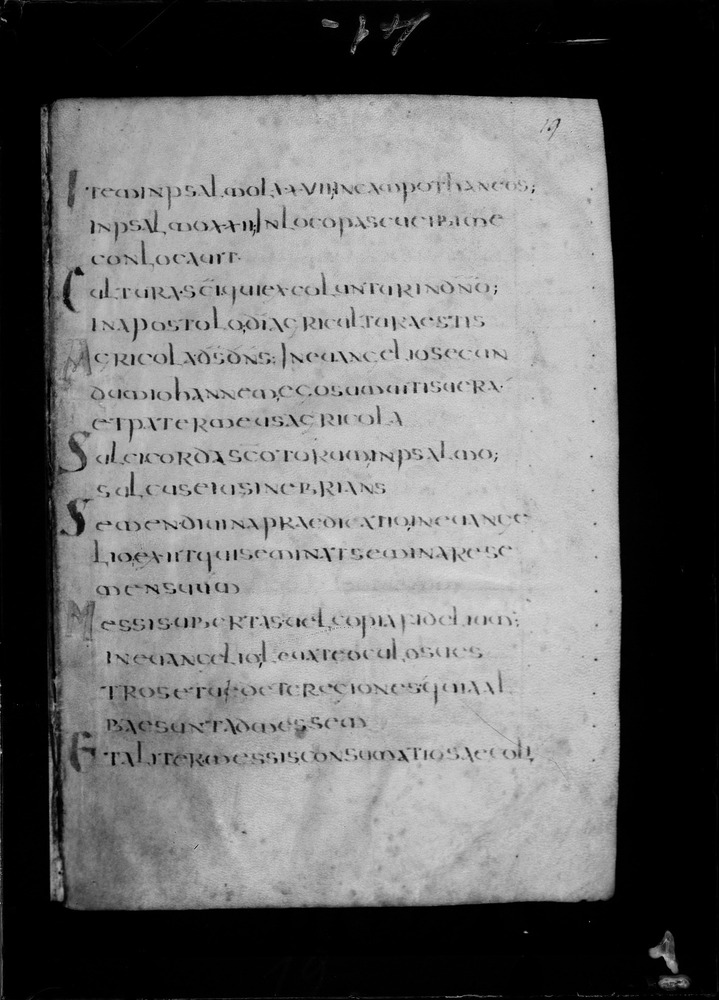 19
ITEMINPSALMOLXXVIIINCAMPOTHANEOS;
INPSALMOXXIIINLOCOPASCUEIBIME
CONLOCAUIT·
CULTURASCIQUIEXCOLUNTURINDNO;
INAPOSTOLODIAGRICULTURAESTIS
AGRICOLADSDNS;INEUANGELIOSECUN
DUMIOHANNEMEGOSUMUITISUERA·
ETPATERMEUSAGRICOLA
SULCICORDASCOTORUMINPSALMO;
SULCUSEIUSINEBRIANS
SEMENDIUINAPRAEDICATIOINEUANGE
LIOEXIITQUISEMINATSEMINARESE
MENSUUM
MESSISUBERTASUELCOPIAFIDELIUM;
INEUANGELIOLEUATEOCULOSUES
TROSETUIDETEREGIONESQUIAAL
BAESUNTADMESSEM
ETALITERMESSISCONSUMATIOSAECULI;